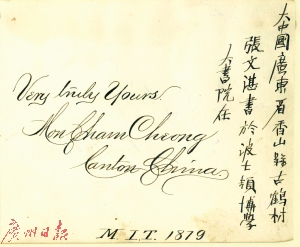 大中國廣東省香山縣古鶴村
張文湛書於波士頓博學
大書院任
Very truly Yours.
Mon Cham Cheong
Canton China
廣州日報
M I T. 1879